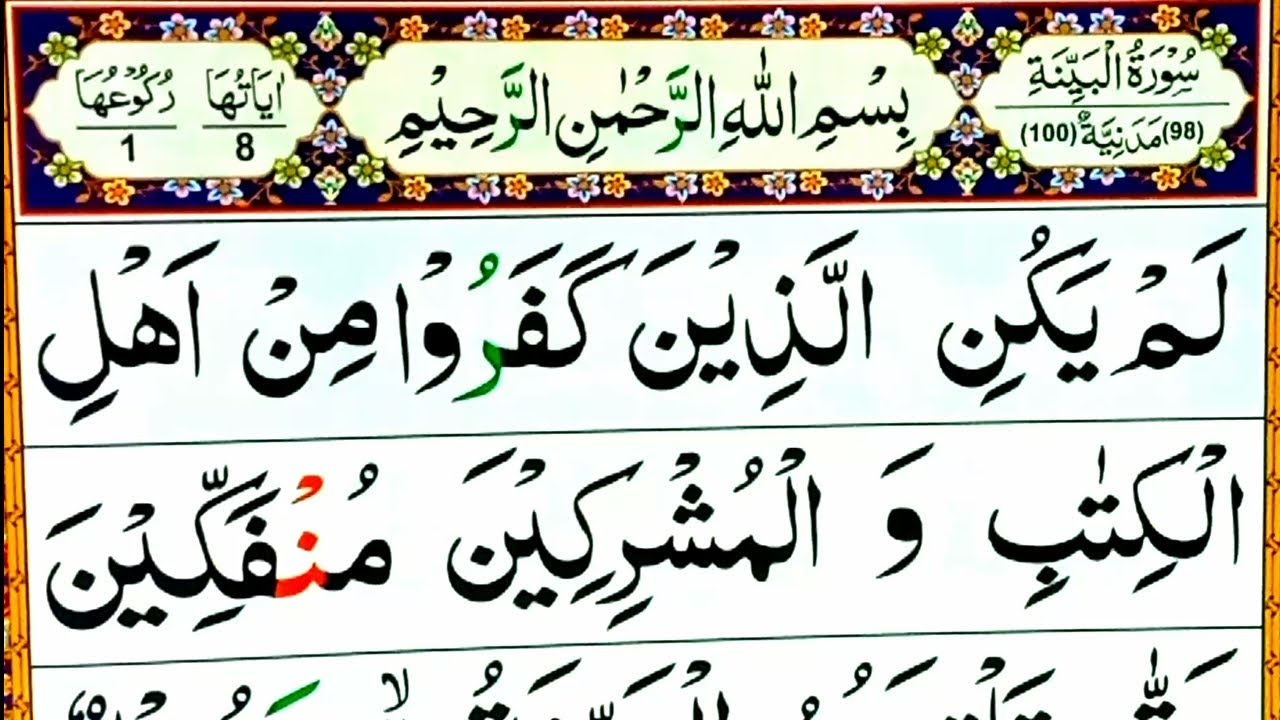 سُوْرَةُ الْبَيِّنَةِ
(98) مَدَنِيَّةٌ (100)
بِسْمِ اللّٰهِ الرَّحْمٰنِ الرَّحِيْمِ
اٰيَاتُهَا 8
رُكُوْعُهَا 1
لَمْ يَكُنِ الَّذِيْنَ كَفَرُوْا مِنْ اَهْلِ
الْكِتٰبِ وَ الْمُشْرِكِيْنَ مُنْفَكِّيْنَ